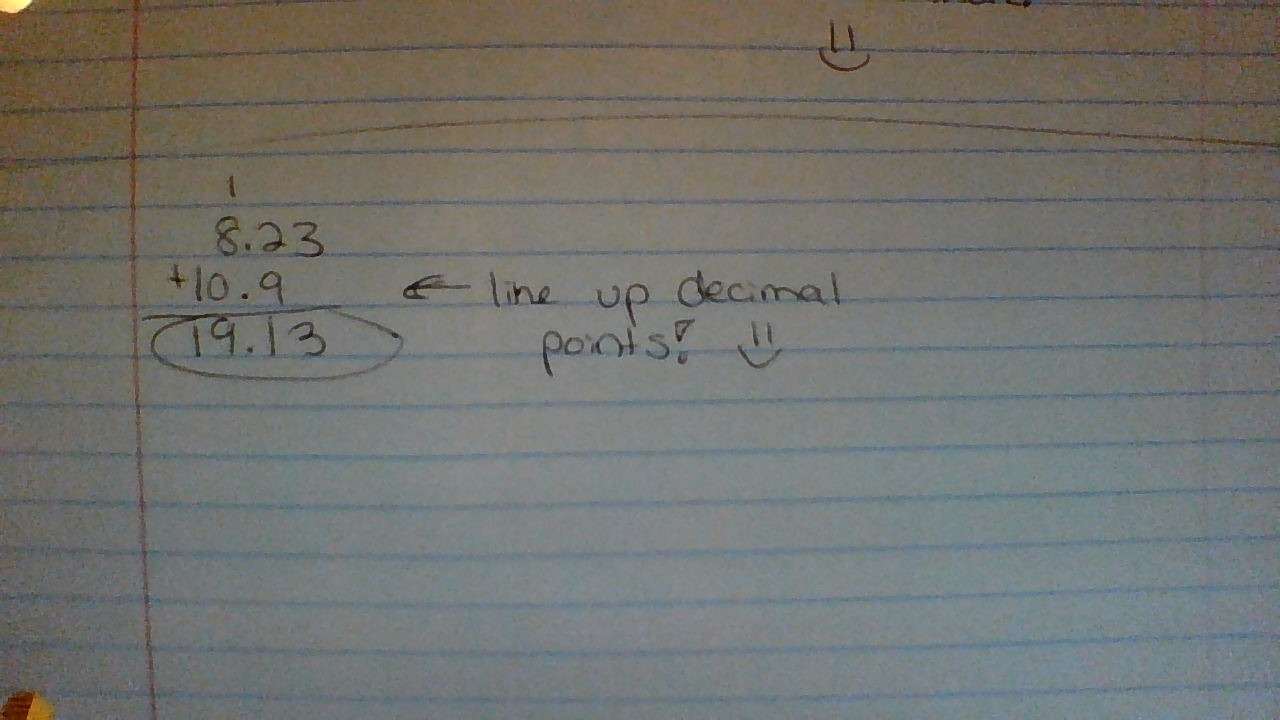 1
8.23
+10.9 ← line up decimal
19.13 points!